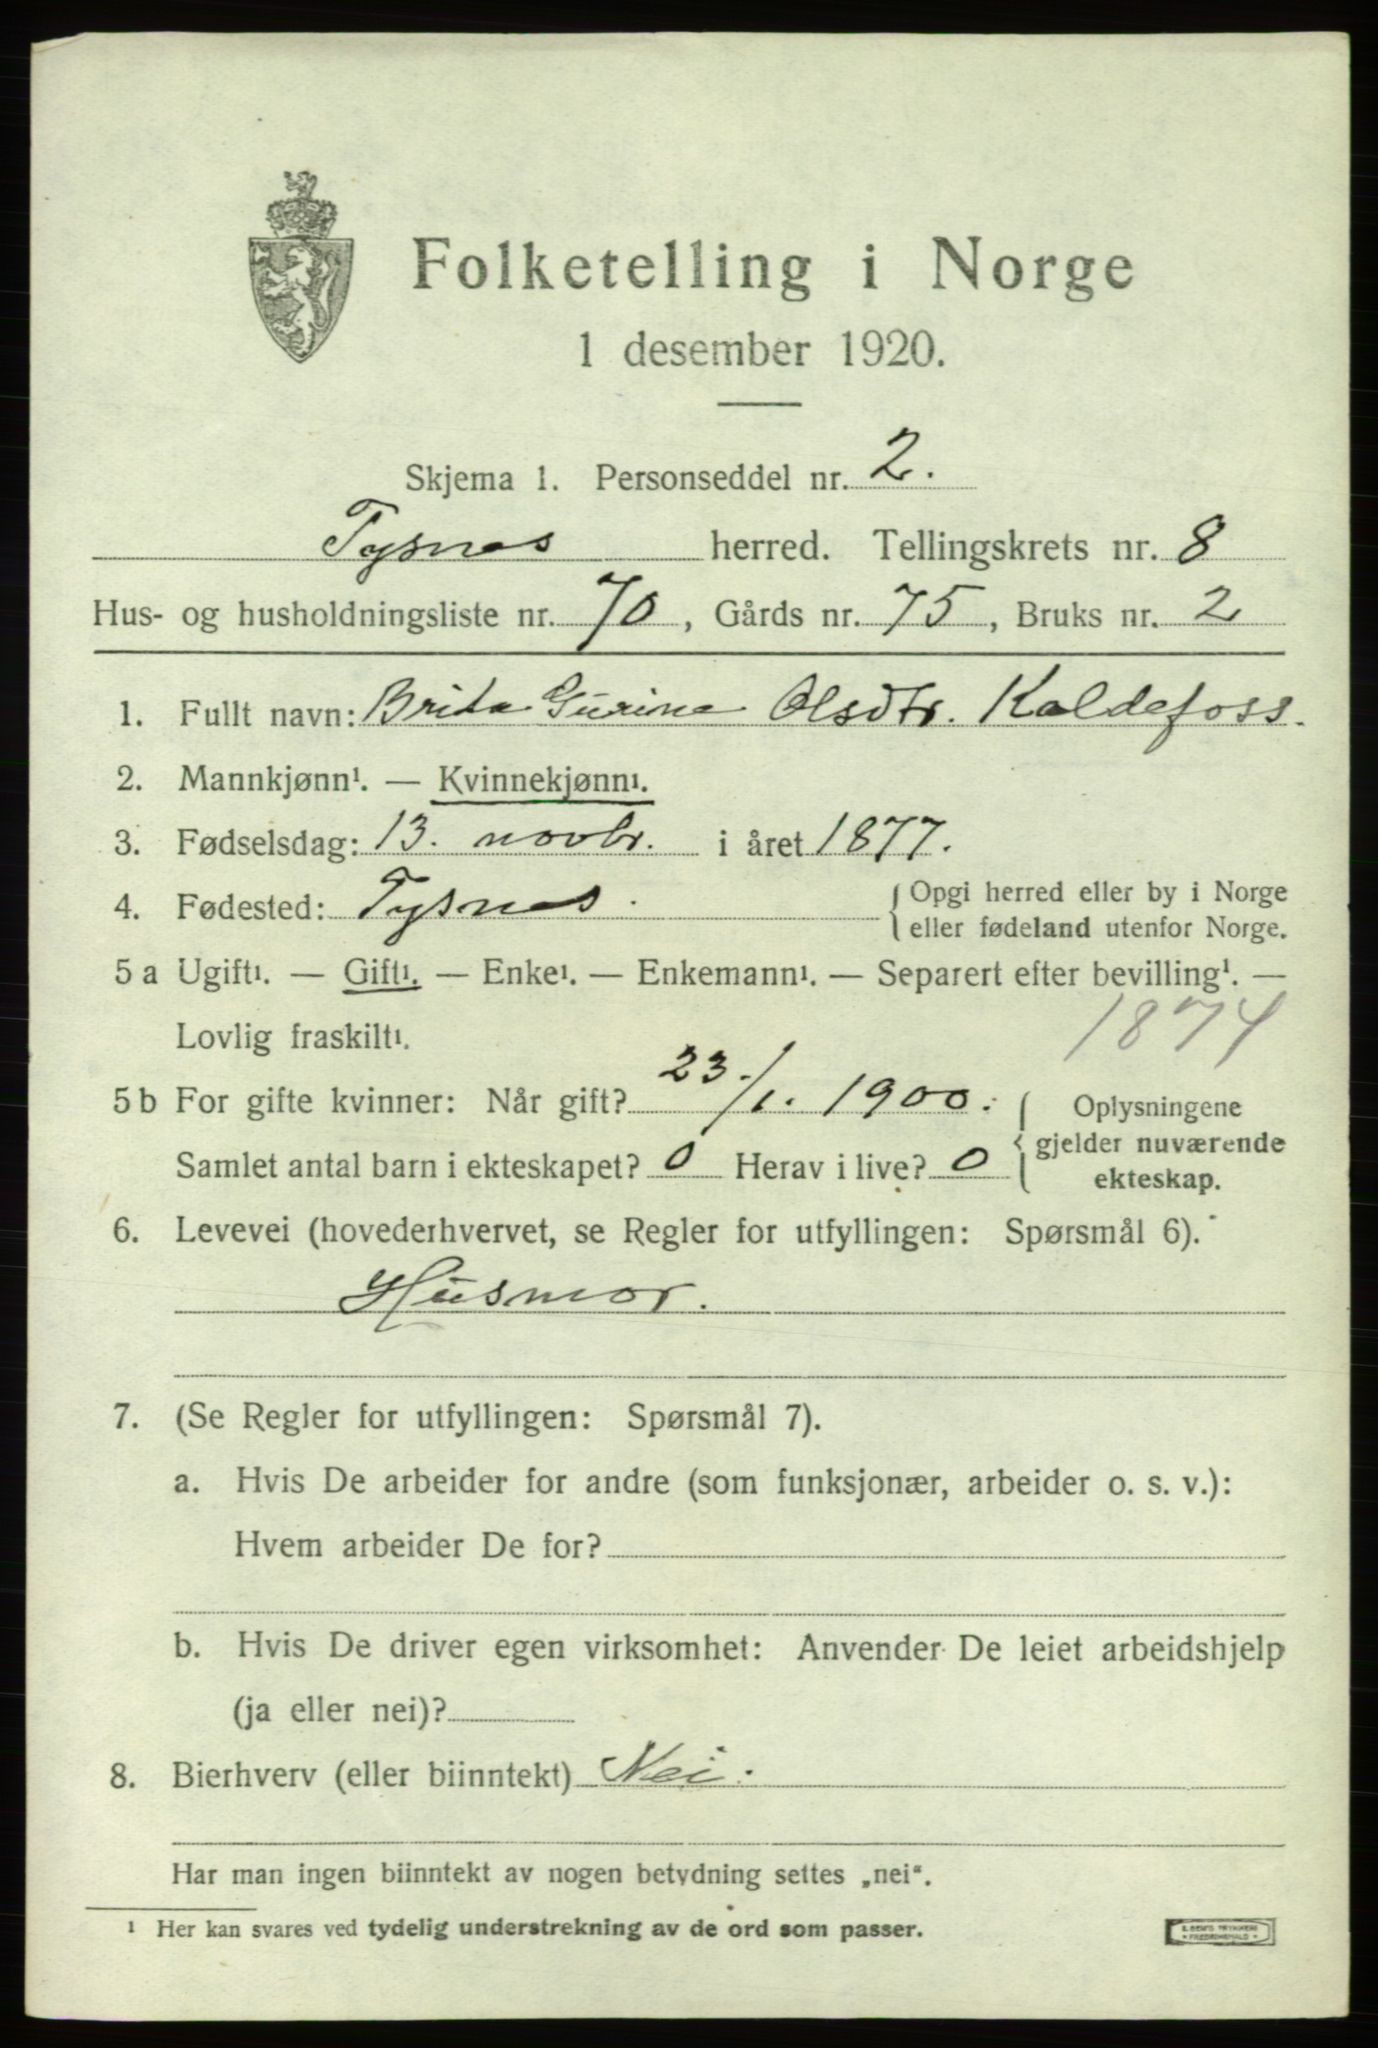 Folketelling i Norge
1 desember 1920.
Skjema 1. Personseddel nr. 2.
Tysnes herred. Tellingskrets nr. 8
Hus- og husholdningsliste nr. 70, Gårds nr. 75, Bruks nr. 2
1. Fullt navn: Brita Gurina Olsdtr. Kaldefoss.
2. Mannkjønn¹. — Kvinnekjønn¹.
3. Fødselsdag: 13. novbr. i året 1877.
4. Fødested: Tysnes.
{ Opgi herred eller by i Norge
eller fødeland utenfor Norge.
5 a Ugift¹. — Gift¹. — Enke¹. — Enkemann¹. — Separert efter bevilling¹. —
Lovlig fraskilt¹.
1874
5 b For gifte kvinner: Når gift? 23./1. 1900.
Samlet antal barn i ekteskapet? 0 Herav i live? 0
{ Oplysningene
gjelder nuværende
ekteskap.
6. Levevei (hovederhvervet, se Regler for utfyllingen: Spørsmål 6).
Husmor.
7. (Se Regler for utfyllingen: Spørsmål 7).
a. Hvis De arbeider for andre (som funksjonær, arbeider o. s. v.):
Hvem arbeider De for?
b. Hvis De driver egen virksomhet: Anvender De leiet arbeidshjelp
(ja eller nei)?
8. Bierhverv (eller biinntekt) Nei.
Har man ingen biinntekt av nogen betydning settes „nei“.
¹ Her kan svares ved tydelig understrekning av de ord som passer.
E. SEM'S TRYKKERI
• FREDRIKSHALD •